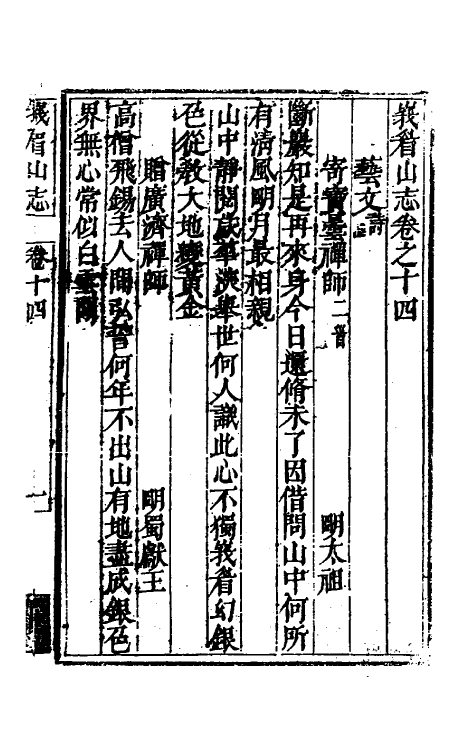 峩眉山志卷之十四
藝文 詩
寄寶曇禪師 二首 明太祖
斷巖知是再來身今日還脩未了因借問山中何所
有淸風明月最相親
山中靜閱歲華深舉世何人識此心不獨峩眉幻銀
色從敎大地變黃金
贈廣濟禪師 明蜀獻王
高僧飛錫去人間弘誓何年不出山有地盡成銀色
界無心常似白雲閒
峩眉山志 卷十四 一